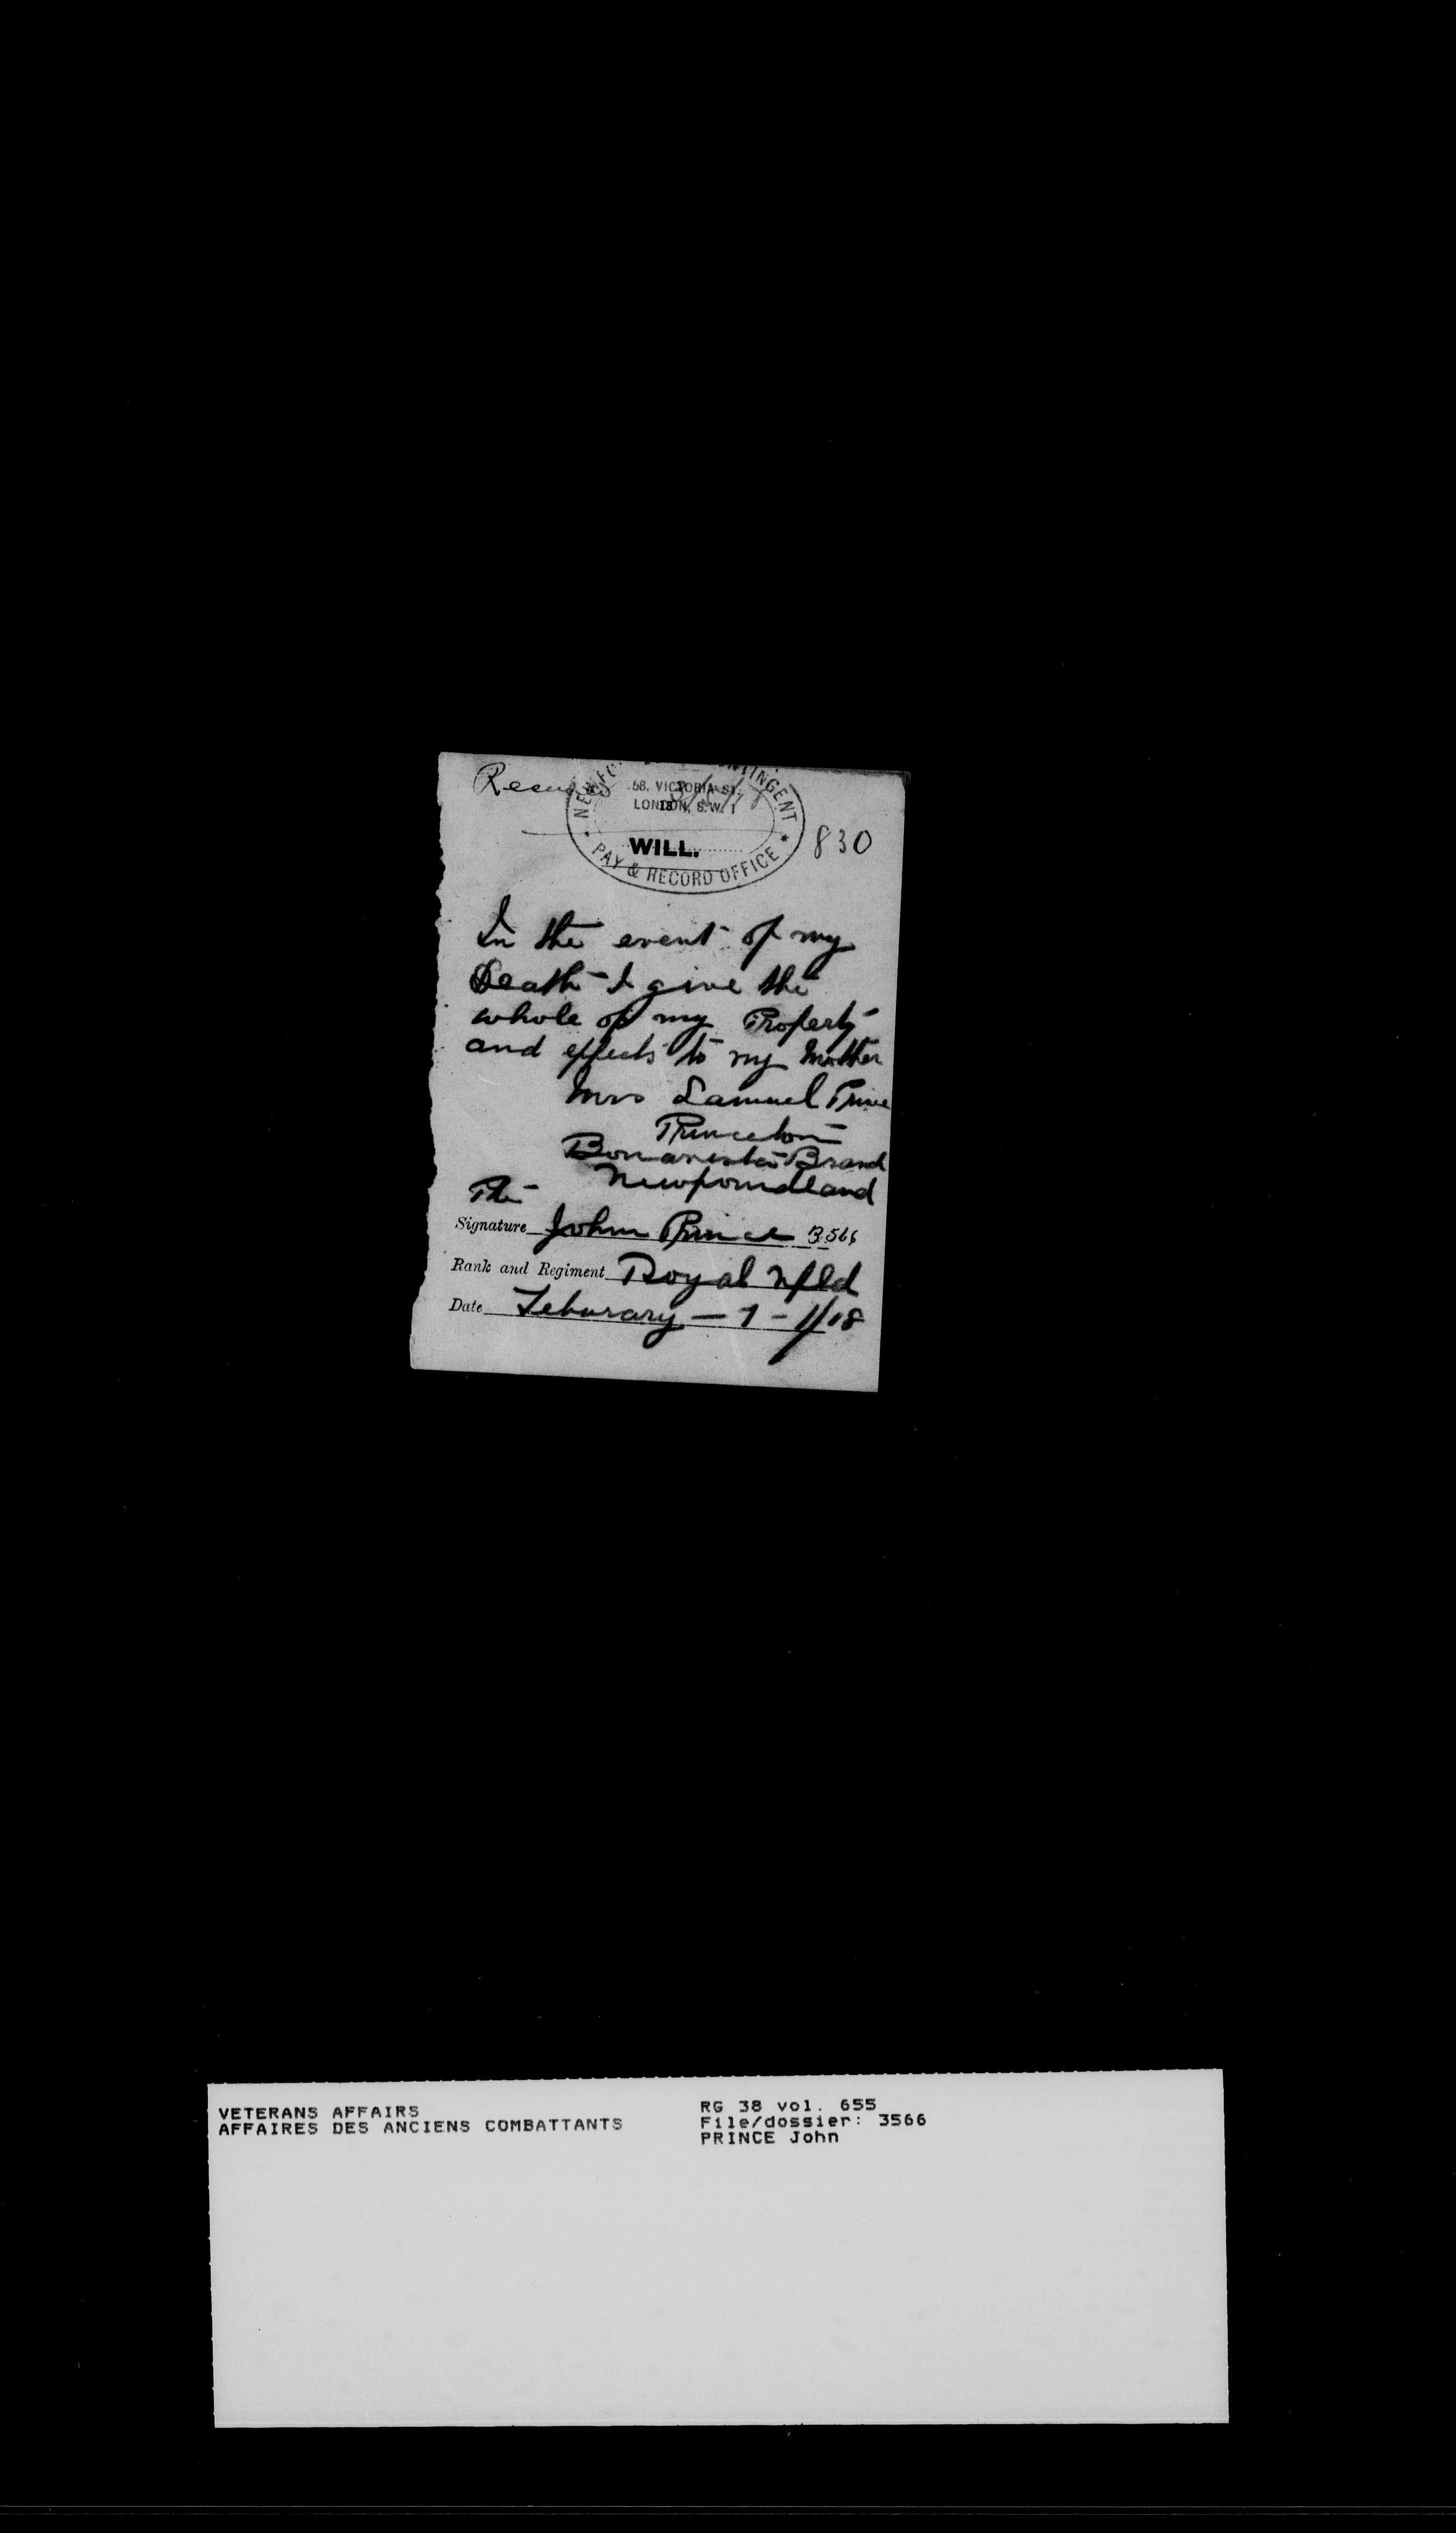 Records
NEWFO CONTINGENT
58. VICTORIA ST.
LONDON, S.W. 1
18
WILL.
PAY & RECORD OFFICE
830
In the event of my
Death I give the
whole of my Property
and effects to my Mother
Mrs Samuel Prince
Princeton
Bonavista Branch
Newfoundland
Pte
Signature John Prince 3566
Rank and Regiment Royal Nfld
Date Feburary - 7 - 1/18
VETERANS AFFAIRS
AFFAIRES DES ANCIENS COMBATTANTS
RG 38 vol. 655
File/dossier: 3566
PRINCE John